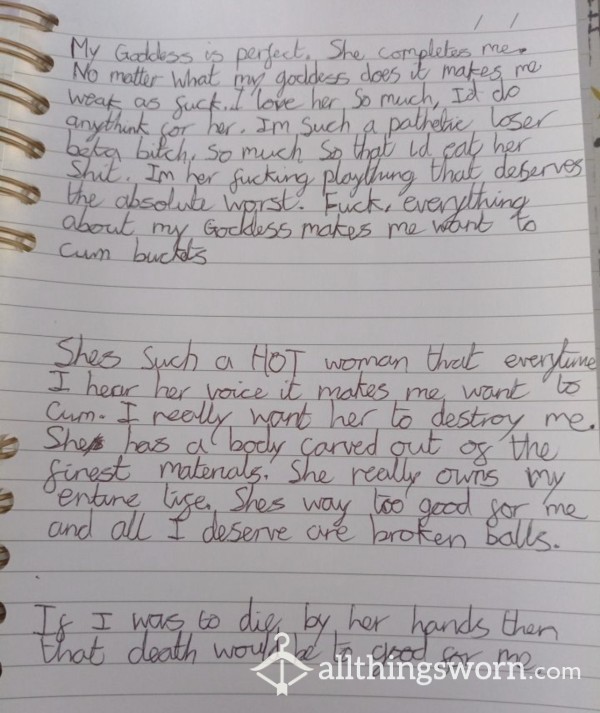 / /
My Goddess is perfect. She completes me.
No matter what my goddess does it makes me
weak as fuck.. I love her so much, I'd do
anythink for her. Im such a pathetic loser
beta bitch, so much so that id eat her
shit. Im her fucking plaything that deserves
the absolute worst. Fuck, everything
about my Goddess makes me want to
cum buckets
Shes such a HOT woman that everytime
I hear her voice it makes me want to
cum. I really want her to destroy me.
She has a body carved out of the
finest materials. She really owns my
entire life. Shes way too good for me
and all I deserve are broken balls.
If I was to die by her hands then
that death would be to good for me
allthingsworn.com